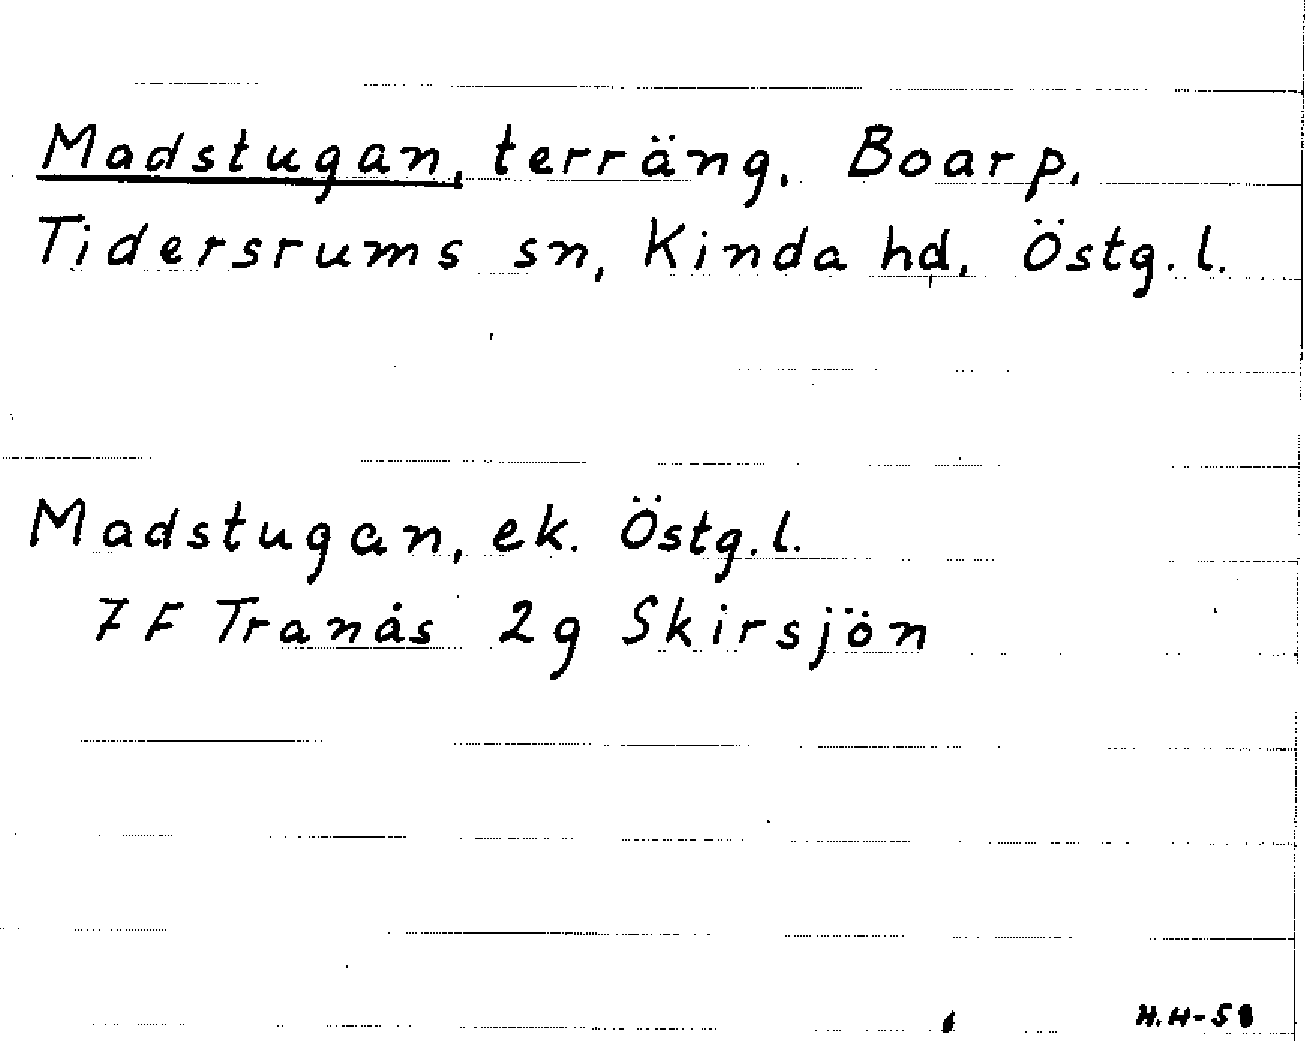 Madstugan, terräng, Boarp,
Tidersrums sn, Kinda hd, Östg. l.
Madstugan, ek. Östg. l.
7 F Tranås 2g Skirsjön